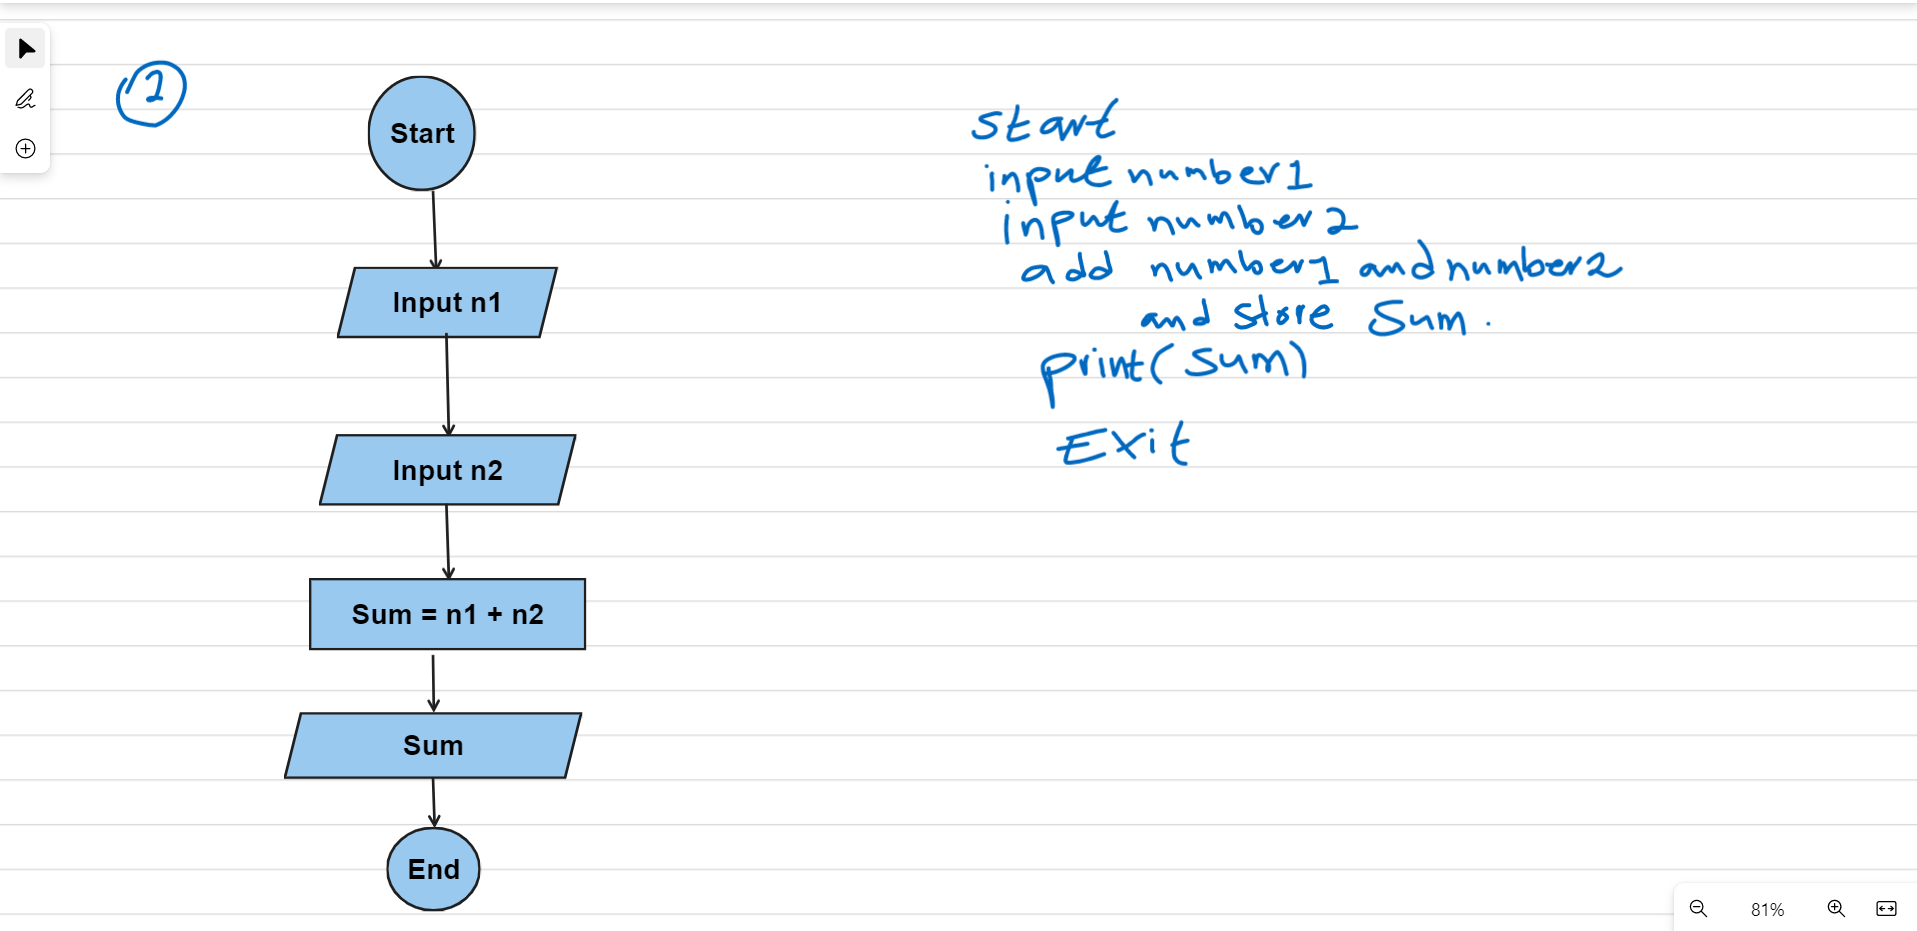 1
Start
Input n1
Input n2
Sum = n1 + n2
Sum
End
Start
input number1
input number2
add number1 and number2
and store Sum.
print(Sum)
Exit
81%